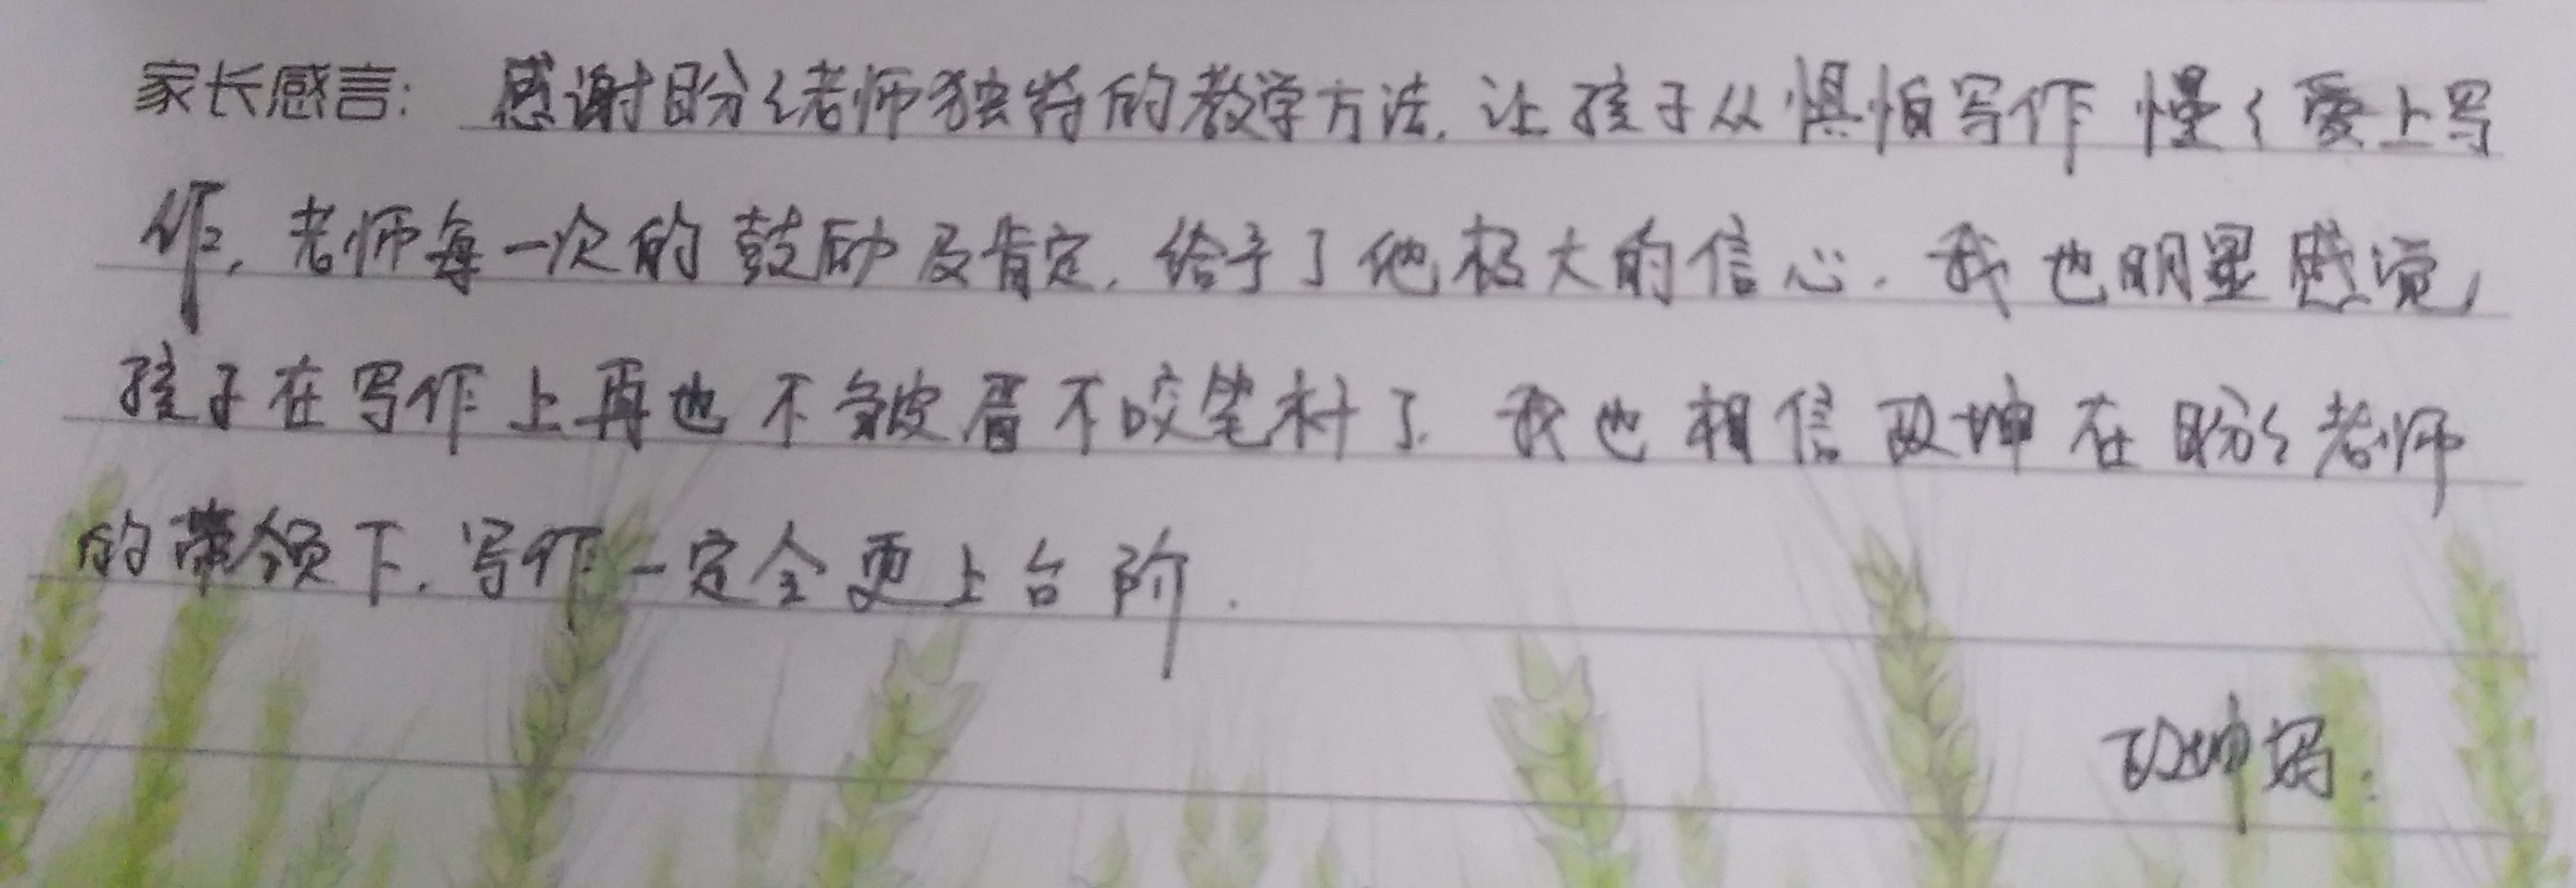 家长感言：感谢盼盼老师独特的教学方法，让孩子从惧怕写作慢慢爱上写
作，老师每一次的鼓励及肯定，给予了他极大的信心。我也明显感觉，
孩子在写作上再也不皱眉不咬笔杆了。我也相信政坤在盼盼老师
的带领下，写作一定会更上台阶。
政坤妈.